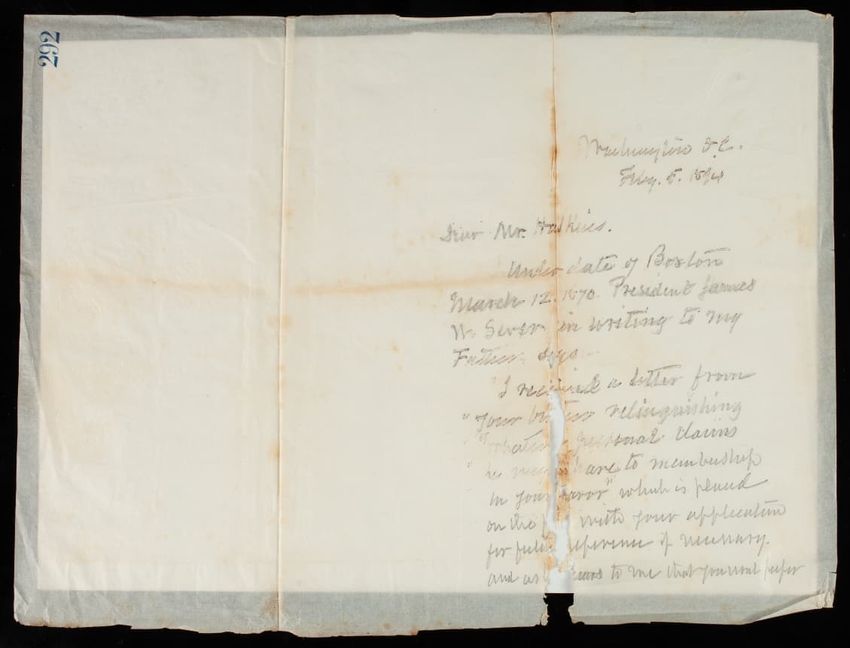 292
Washington D.C.
Feby. 5. 1894
Dear Mr.
Under date of Boston
March 12. 1870. President James
W. Sever in writing to my
Father says
"I received a letter from
"your brother relinquishing
personal claims
to membership
in your favor" which is placed
on the with your application
for reference if necessary.
and as to me that you